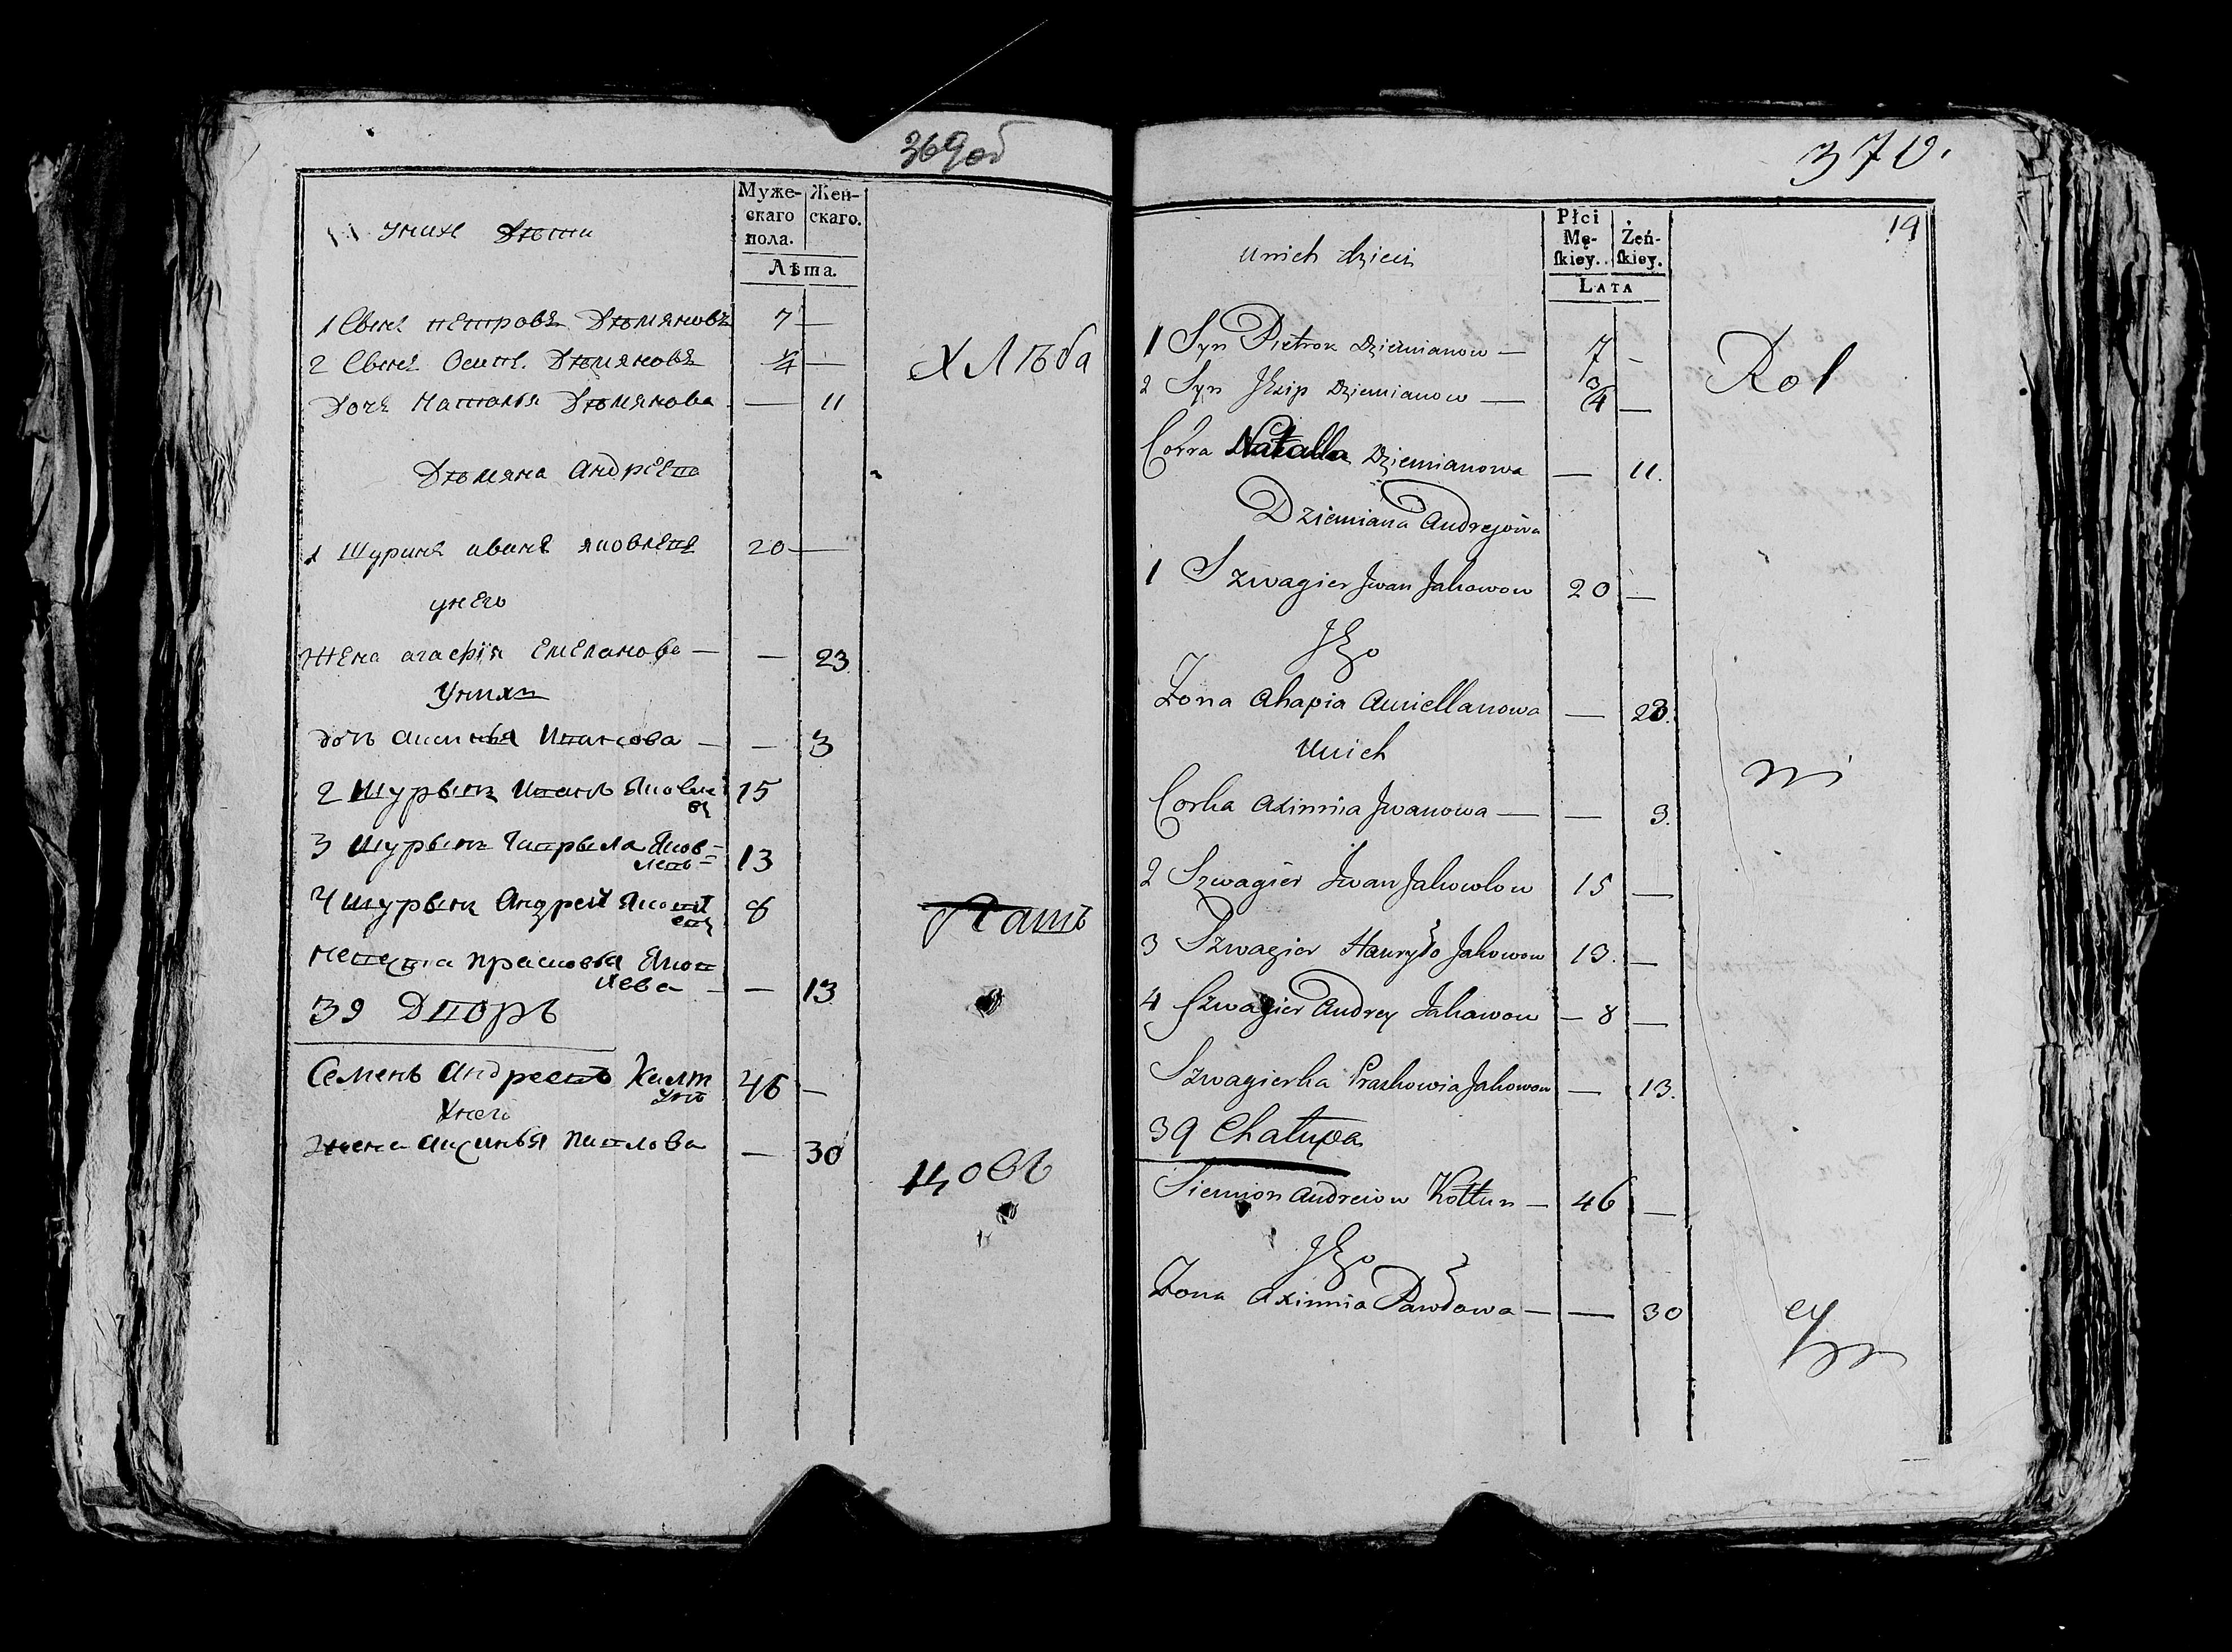 369об
Муже-
скаго
пола.
Жен-
скаго.
Лѣта.
уних Дѣти
1 Сынъ петровъ Дѣмяновъ 7 —
2 Сынъ Осипъ Дѣмяновъ —
Дочъ Наталья Дѣмянова — 11
ХЛѣба
Дѣмяна Андрѣева
1 Шуринъ иванъ яковлевъ 20 —
унего
Жена агафія Емеланова — — 23
Уних
дочь аксинья Иванова — — 3
2 Шурынъ Иванъ Яковле
въ 15
3 Шурынъ Гаврыла Яков-
левъ 13
4 Шурынъ Андрей Яковл
евъ 8
Пашъ
Прасковья Яков
лева — — 13
39 Дворъ
Семенъ Андреевъ Калт
унъ 46 —
Унего
Жена Аксинья Павлова — 30
цовъ
370.
19
Płci
Mę-
ſkiey.
Żeń-
ſkiey.
LATA
unich dzieci
1 Syn Pietrok Dziemianow — 7 —
2 Syn Jozip Dziemianow — 3/4 —
Rol
Corka Natalla Dziemianowa — 11.
Dziemiana Andrejowa
1 Szwagier Jwan Jakowow 20 —
Jego
Żona Ahapia Amiellanowa — 23.
Unich
ni
Corka Axinnia Jwanowa — — 3.
2 Szwagier Jwan Jakowlow 15 —
3 Szwagier Hauryło Jakowow 13. —
4 Szwagier Andrey Jakowow — 8 —
Szwagierka Praskowia Jakowow — 13.
39 Chałupa
Siemion Andreiow Kołtun — 46 —
Jego
Żona Axinnia Pawłowa — — 30
cy